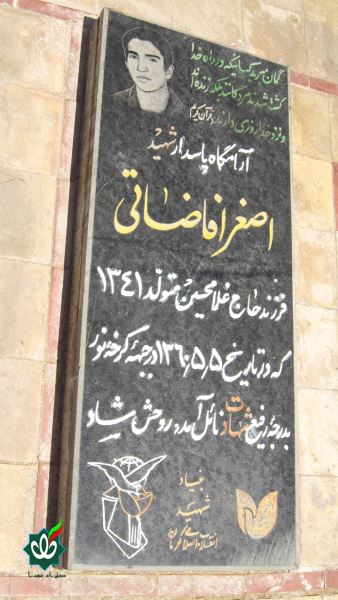 گمان مبرید کسانیکه در راه خدا
کشته شدند مرده‌اند بلکه زنده‌اند
و نزد خدا روزی دارند. قرآن کریم
آرامگاه پاسدار شهید
اصغر افاضاتی
فرزند حاج غلامحسین متولد ۱۳۴۱
که در تاریخ ۱۳۶۰٫۵٫۵ در جبهه کرخه نور
بدرجه رفیع شهادت نائل آمد. روحش شاد
بنیاد
شهید
انقلاب اسلامی کرمان